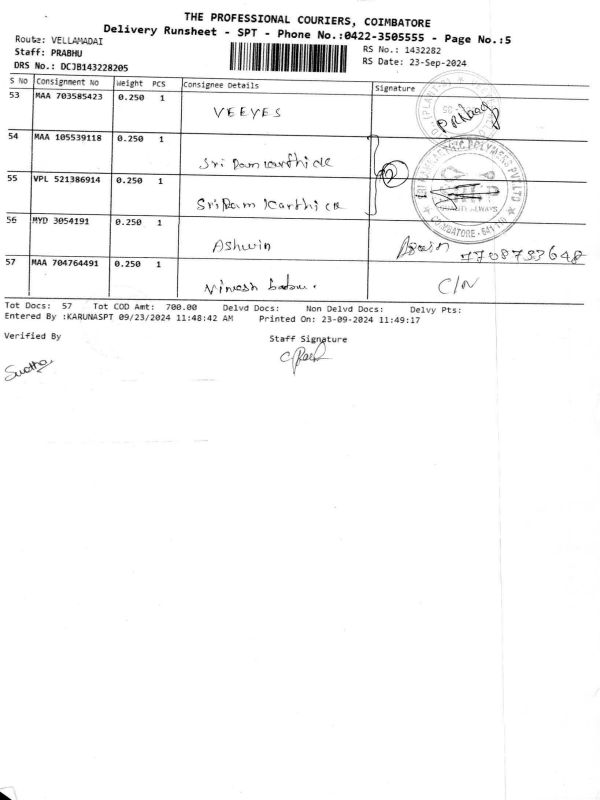 THE PROFESSIONAL COURIERS, COIMBATORE
Delivery Runsheet - SPT - Phone No.:0422-3505555 - Page No.:5
Route: VELLAMADAI
RS No.: 1432282
Staff: PRABHU
RS Date: 23-Sep-2024
DRS No.: DCJB143228205
S No Consignment No Weight PCS Consignee Details Signature
53 MAA 703585423 0.250 1
VEEYES
54 MAA 105539118 0.250 1
Sri Ram Karthice
55 VPL 521386914 0.250 1
Sri Ram Karthice
ALWAYS
COIMBATORE - 641 110
56 MYD 3054191 0.250 1
Ashwin 7708733648
57 MAA 704764491 0.250 1
Vimesh babu. C/N
Tot Docs: 57 Tot COD Amt: 700.00 Delvd Docs: Non Delvd Docs: Delvy Pts:
Entered By :KARUNASPT 09/23/2024 11:48:42 AM Printed On: 23-09-2024 11:49:17
Verified By Staff Signature